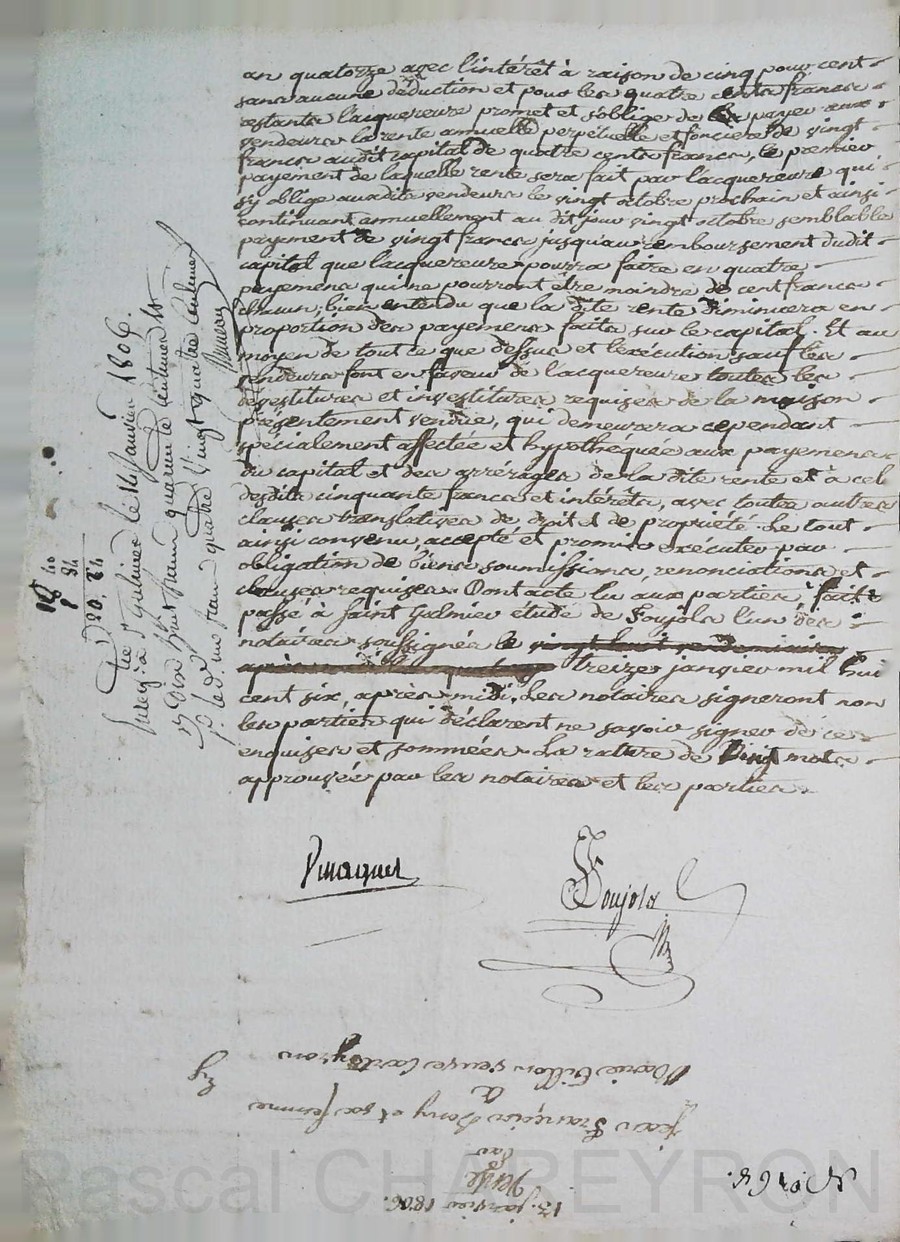 an quatorze avec l'intérêt à raison de cinq pour cent
sans aucune déduction et pour les quatre cents francs
restants l'acquereure promet et s'oblige de payer aux
vendeurs la rente annuelle perpétuelle et fonciere de vingt
francs audit capital de quatre cents francs, le premier
payement de laquelle rente sera fait par l'acquereure qui
s'y oblige auxdits vendeurs le vingt octobre prochain et ainsi
continuant annuellement au dit jour vingt octobre semblable
payement de vingt francs jusqu'au remboursement dudit
capital que l'acquereure pourra faire en quatre
payemens qui ne pourront être moindre de cent francs
chacun; bien entendu que la dite rente diminuera en
proportion des payemens faits sur le capital. Et au
moyen de tout ce que dessus et l'exécution sauf les
vendeurs font en faveur de l'acquereure toutes les
devestitures et investitures requises de la maison
présentement vendue, qui demeurera cependant
spécialement affectée et hypothéquée aux payemens
du capital et des arrérages de la dite rente et à cel
desdits cinquante francs et intérêts, avec toutes autres
clauses translatives de droit et de propriété. Le tout
ainsi convenu, accepté et promis exécuter par
obligation de biens soumissions, renonciations et
clauses requises. Dont acte lu aux parties, fait &
passé à Saint Galmier étude de Foujols l'un des
notaires soussignés le
treize janvier mil hui
cent six, après midi. Les notaires signeront non
les parties qui déclarent ne savoir signer de ce
enquises et sommées. La rature de vingt mots
approuvée par les notaires et les parties.
Enreg. à St Galmier le 14 Janvier 1806.
dix huit francs quarante centimes
un franc quatre vingt quatre centimes
18 40
1 84
20. 24
Foujols
13. janvier 1806.
Vente
par
Jean François Bony et sa femme
à
Marie Villon veuve
Pascal CHAPEYRON